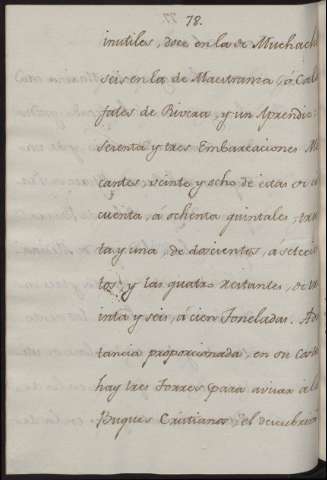 78.
inutiles, doce en la de Muchach
seis en la de Maestranza, ó Cala
fates de Rivera, y un Aprendis
sesenta y tres Embarcaciones M
cantes, veinte y ocho de estas de ci
cuenta, á ochenta quintales, tre
ta y una, de doscientos, á setecie
tos, y las quatro restantes, de tr
inta y seis, á cien Toneladas. A
tancia proporcionada, en su Cost
hay tres Torres para avisar á l
Buques Cristianos, el descubrim